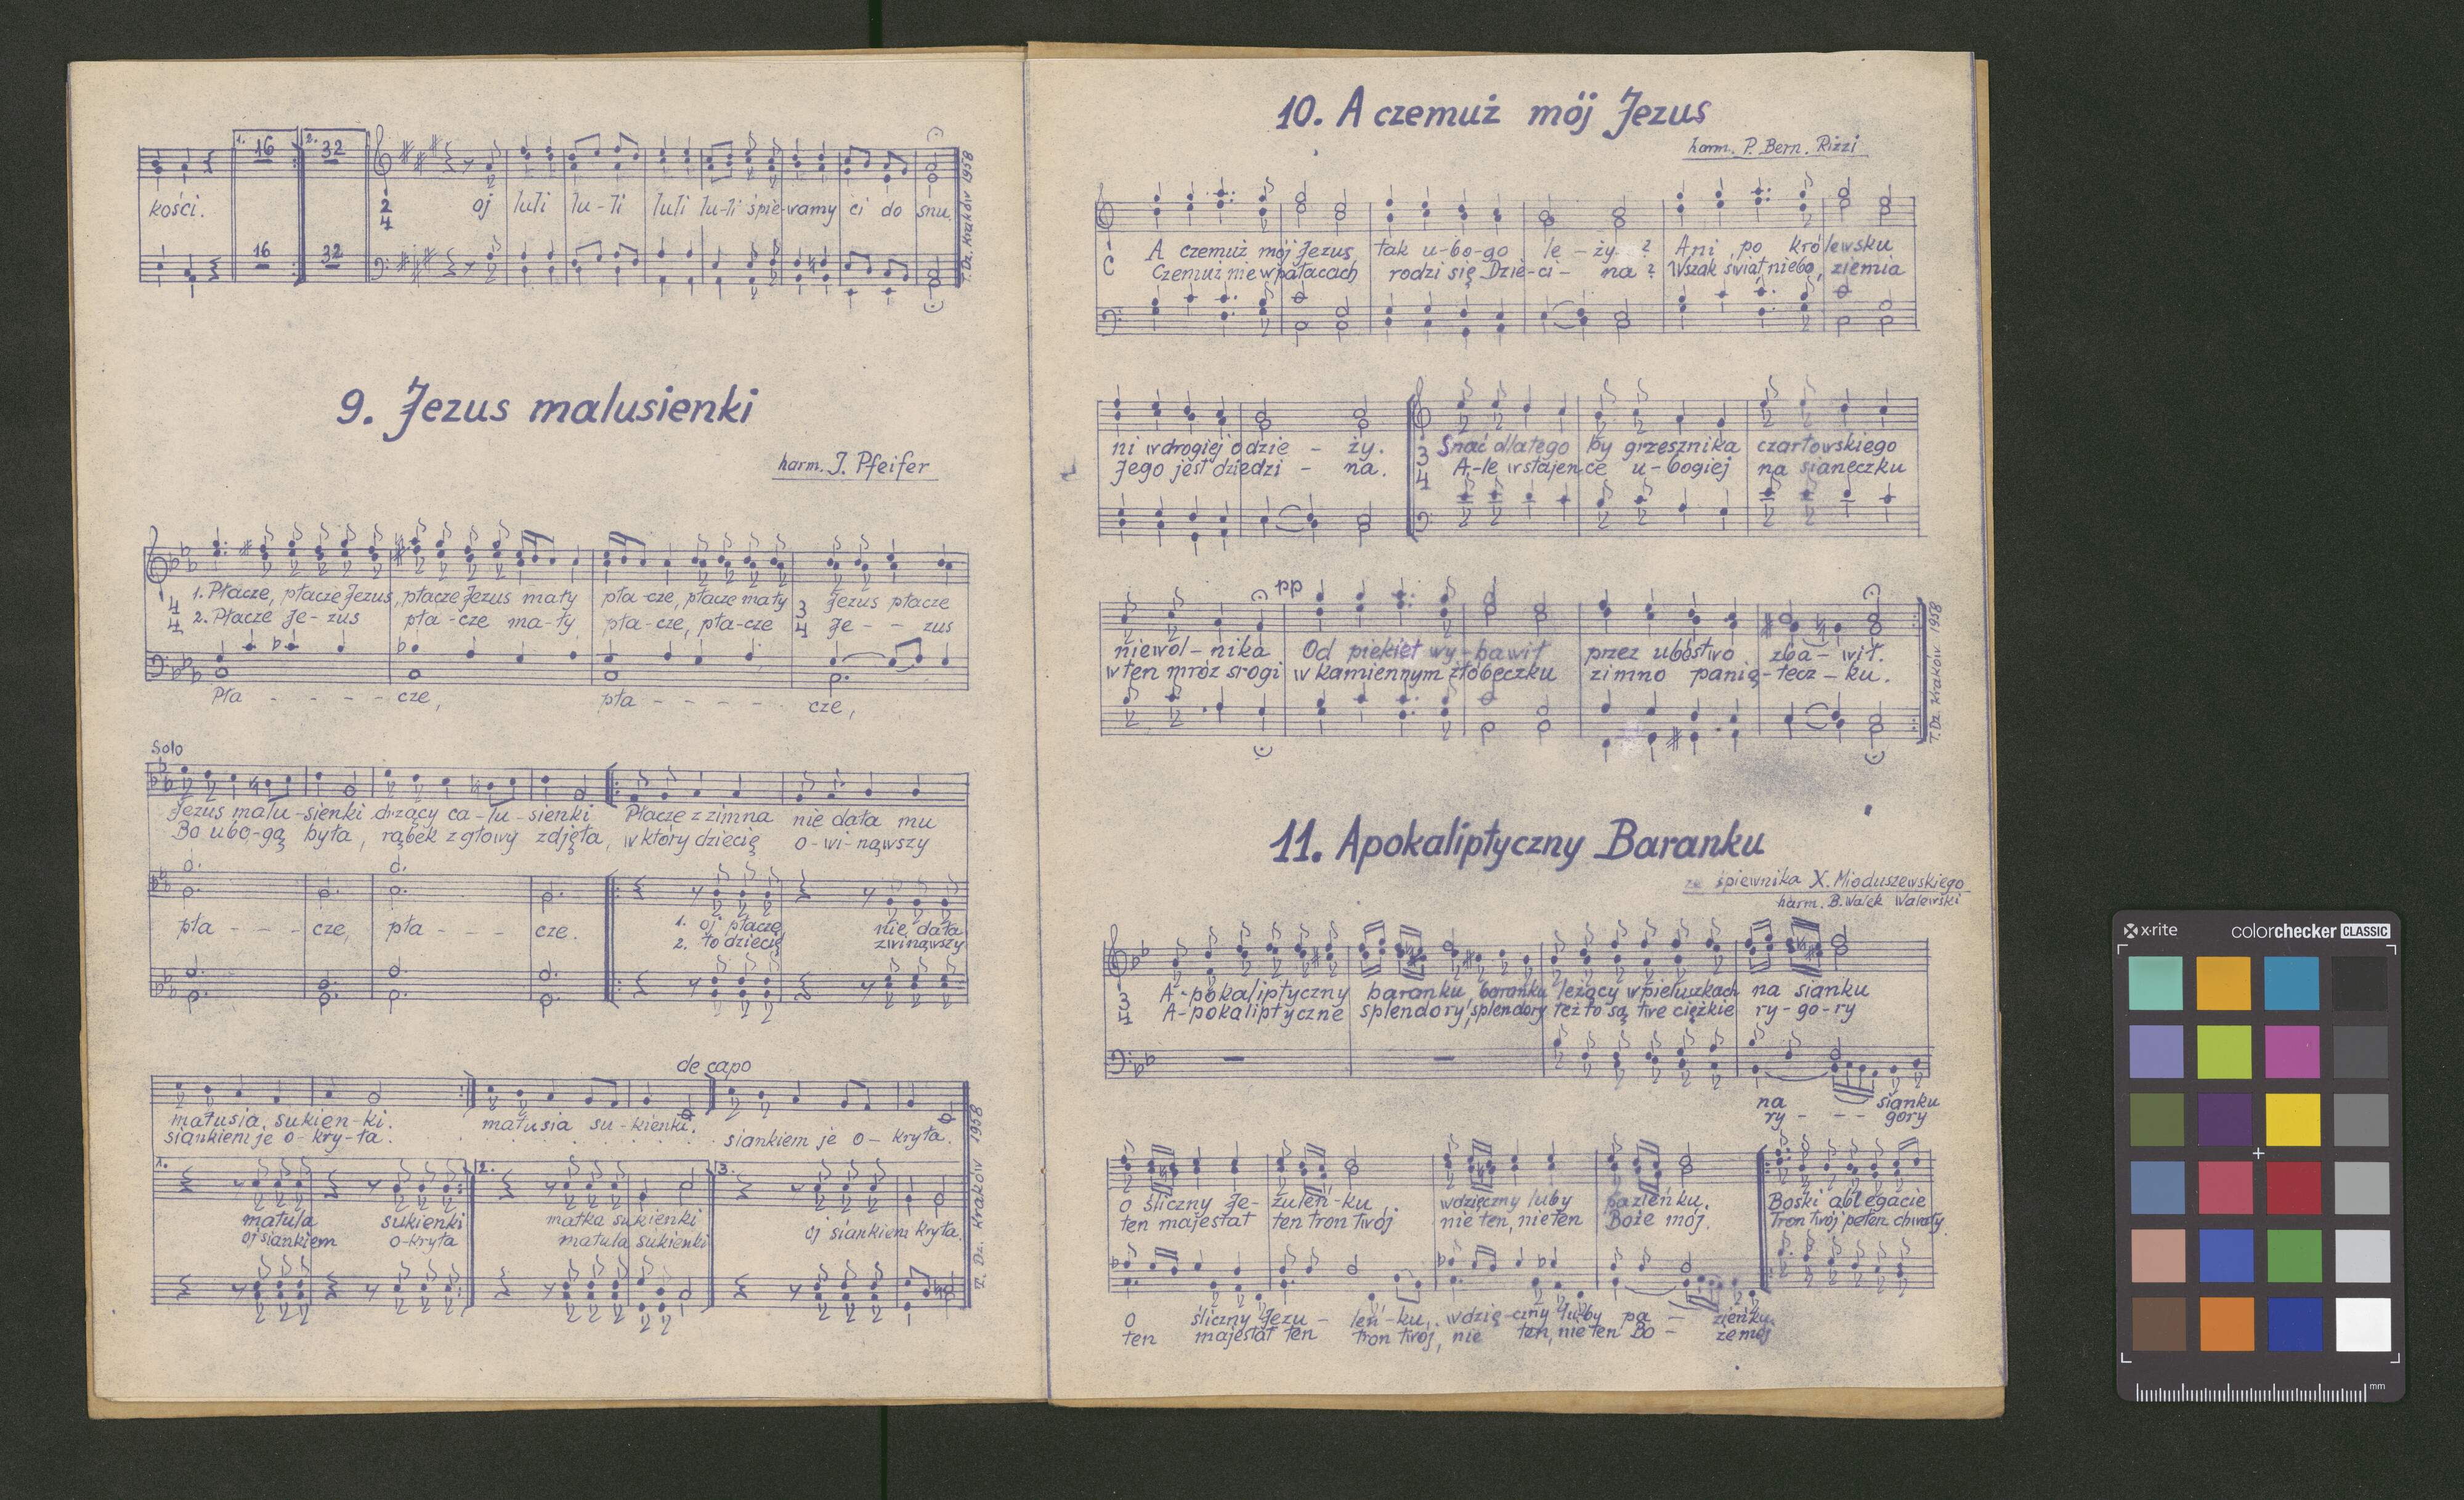 1. 16 2. 32
kości. 2 4 oj luli lu-li luli lu-li śpie-wamy ci do snu.
16 32
T. Dz. Kraków 1958
9. Jezus malusienki
harm. J. Pfeifer
4 4 1. Płacze, płacze Jezus, płacze Jezus mały pła-cze, płacze mały 3 4 Jezus płacze
2. Płacze Je-zus pła-cze ma-ły pła-cze, pła-cze Je - - zus
Pła - - - - cze, pła - - - - cze,
Solo
Jezus malu-sienki drżący ca-lu-sienki Płacze z zimna nie dała mu
Bo ubo-gą była, rąbek z głowy zdjęła, w który dziecię o-wi-nąwszy
pła - - - cze, pła - - - cze. 1. oj płacze nie dała
2. to dziecię zwinąwszy
de capo
matusia sukien-ki. matusia su-kienki.
siankiem je o-kry-ła. siankiem je o-kryła.
1. 2. 3.
matula sukienki matka sukienki oj siankiem kryła.
oj siankiem o-kryła matula sukienki
T. Dz. Kraków 1958
10. A czemuż mój Jezus
harm. P. Bern. Rizzi
C A czemuż mój Jezus, tak u-bo-go le-ży ? Ani po królewsku
Czemuż nie w pałacach rodzi się Dzie-ci-na ? Wszak świat, niebo, ziemia
ni w drogiej odzie - ży. 3 4 Snać dlatego by grzesznika czartowskiego
Jego jest dziedzi - na. A-le w stajence u-bogiej na sianeczku
pp
niewol-nika Od piekieł wy-bawił przez ubóstwo zba-wił.
w ten mróz srogi w kamiennym żłóbeczku zimno panią-tecz-ku.
T. Dz. Kraków 1958
11. Apokaliptyczny Baranku
ze śpiewnika X. Mioduszewskiego
harm. B. Walek Walewski
3 4 A-pokaliptyczny baranku, baranku leżący w pieluszkach na sianku
A-pokaliptyczne splendory, splendory też to są twe ciężkie ry-go-ry
na sianku
ry - - - gory
o śliczny Je-zuleń-ku. wdzięczny luby pazieńku. Boski ablegacie
ten majestat ten tron twój. nie ten, nie ten Boże mój. Tron twój pełen chwały
o śliczny Jezu-leń-ku, wdzię-czny luby pa - zieńku
ten majestat ten tron twój, nie ten, nie ten Bo - że mój
x-rite colorchecker CLASSIC
mm